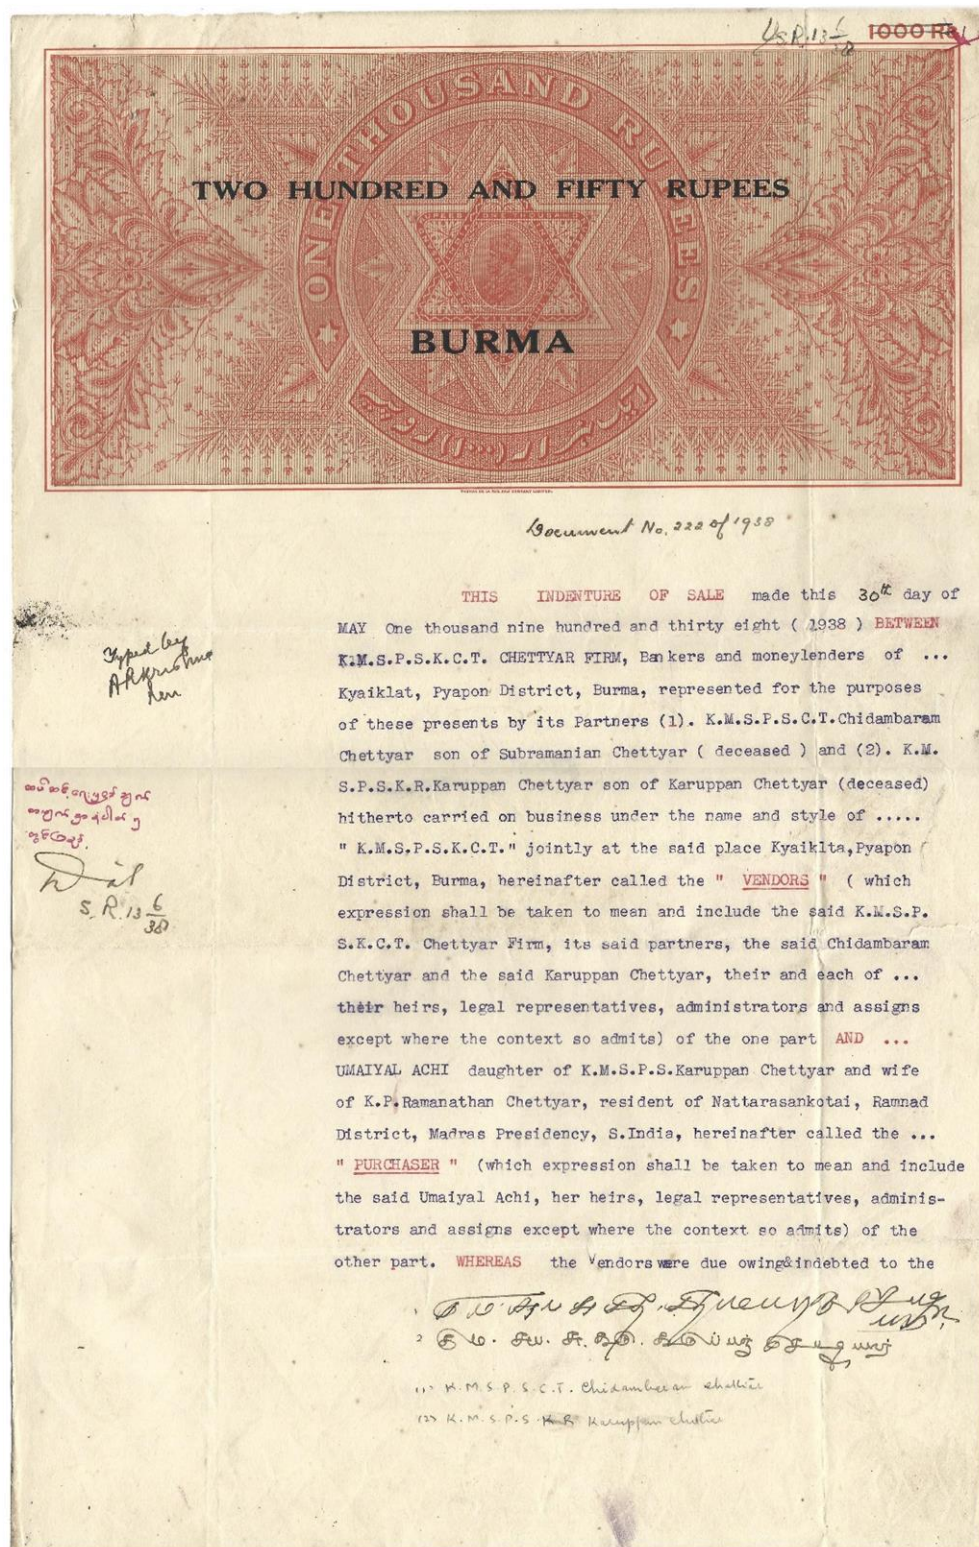 S.R. 13 6/38 1000 Rs
ONE THOUSAND RUPEES
TWO HUNDRED AND FIFTY RUPEES
BURMA
Document No. 222 of 1938
THIS INDENTURE OF SALE made this 30th day of
MAY One thousand nine hundred and thirty eight ( 1938 ) BETWEEN
K.M.S.P.S.K.C.T. CHETTYAR FIRM, Bankers and moneylenders of ...
Kyaiklat, Pyapon District, Burma, represented for the purposes
of these presents by its Partners (1). K.M.S.P.S.C.T.Chidambaram
Chettyar son of Subramanian Chettyar ( deceased ) and (2). K.M.
S.P.S.K.R.Karuppan Chettyar son of Karuppan Chettyar (deceased)
hitherto carried on business under the name and style of .....
" K.M.S.P.S.K.C.T." jointly at the said place Kyaiklta,Pyapon
District, Burma, hereinafter called the " VENDORS " ( which
expression shall be taken to mean and include the said K.M.S.P.
S.K.C.T. Chettyar Firm, its said partners, the said Chidambaram
Chettyar and the said Karuppan Chettyar, their and each of ...
their heirs, legal representatives, administrators and assigns
except where the context so admits) of the one part AND ...
UMAIYAL ACHI daughter of K.M.S.P.S.Karuppan Chettyar and wife
of K.P.Ramanathan Chettyar, resident of Nattarasankotai, Ramnad
District, Madras Presidency, S.India, hereinafter called the ...
" PURCHASER " (which expression shall be taken to mean and include
the said Umaiyal Achi, her heirs, legal representatives, adminis-
trators and assigns except where the context so admits) of the
other part. WHEREAS the Vendors were due owing&indebted to the
Typed by
S.R. 13 6/38
(1) K.M.S.P.S.C.T. Chidambaram chettiar
(2) K.M.S.P.S K R Karuppan chettiar